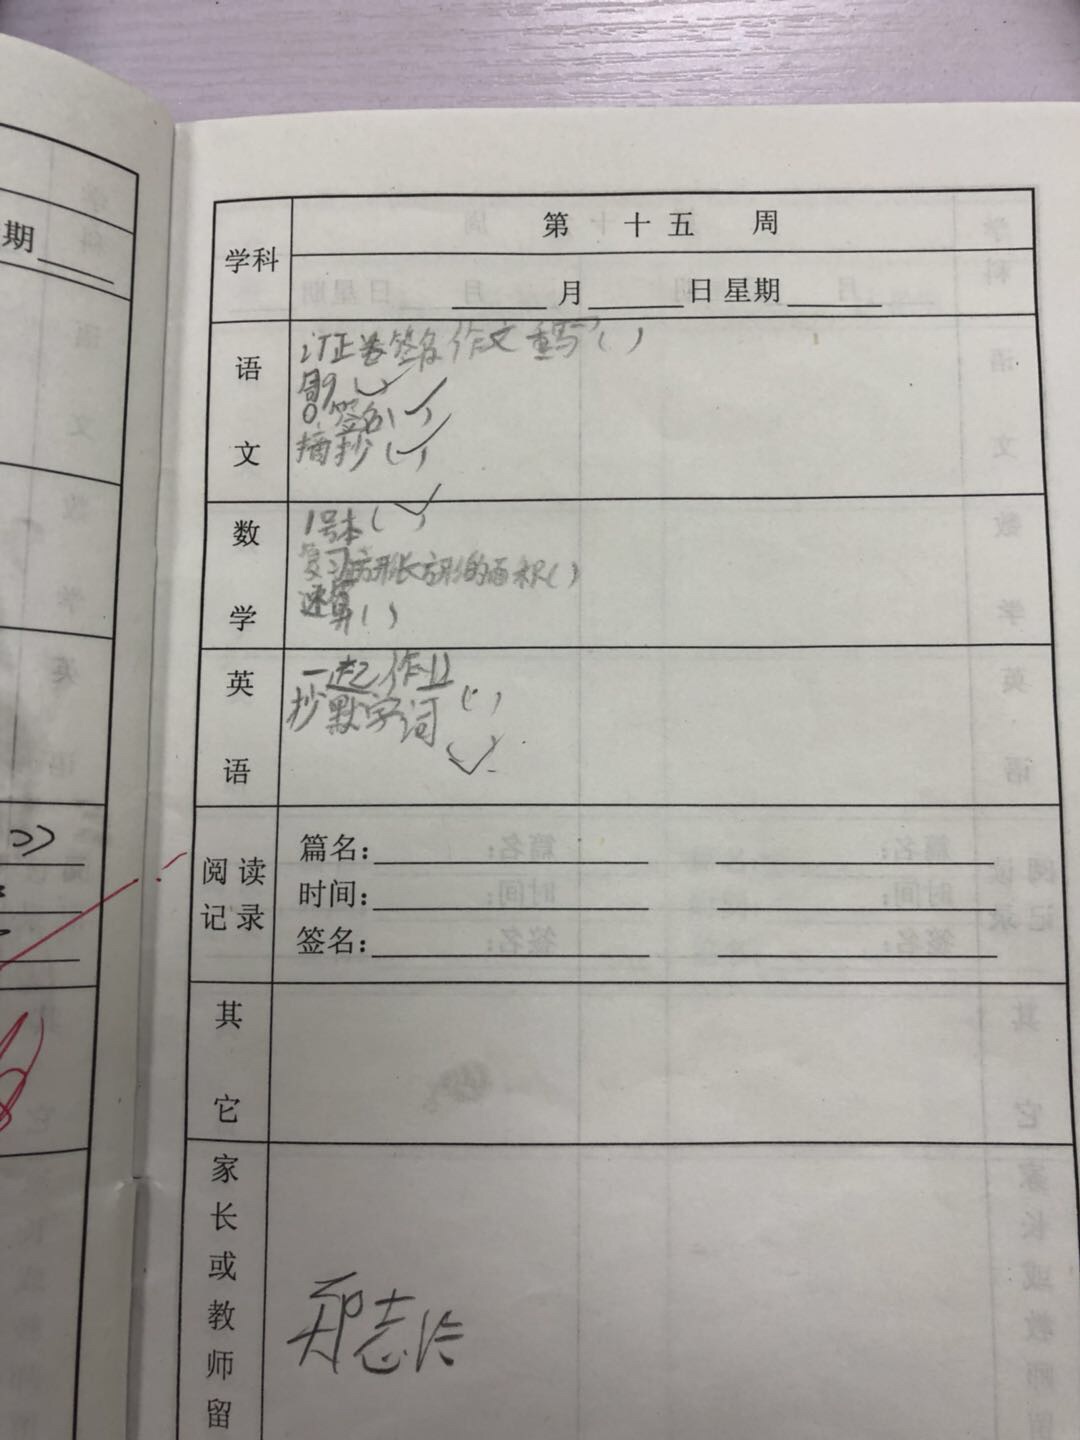 期
学科
第 十五 周
月 日 星期
语文
订正卷签名作文重写( )
周9( )
签名( )
摘抄( )
数学
1号本( )
复习正方形长方形的面积( )
速算( )
英语
一起作业
抄默字词( )
( )
阅读记录
篇名:
时间:
签名:
其它
家长或教师留